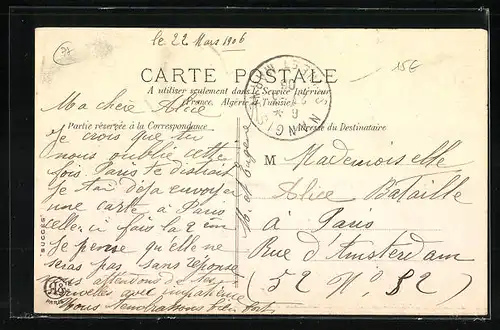 le 22 Mars 1906
15E
CARTE POSTALE
A utiliser seulement dans le Service Intérieur
(France, Algérie et Tunisie)
Partie réservée à la Correspondance
Adresse du Destinataire
NANGIS
Ma chère Alice
Je crois que tu
nous oublie cette
fois. Paris te distrait
Je t'ai déja envoyer
une carte à Paris
celle ci fais la 2 em
Je pense qu'elle ne
seras pas sans réponse
nous attendons de tes
nouvelles avec impatience
Nous t'embrassons bien fort
M et Eugene
M Mademoiselle
Alice Bataille
à Paris
Rue d'Amsterdam
(52 No 82)
"SUCCES"
PARIS